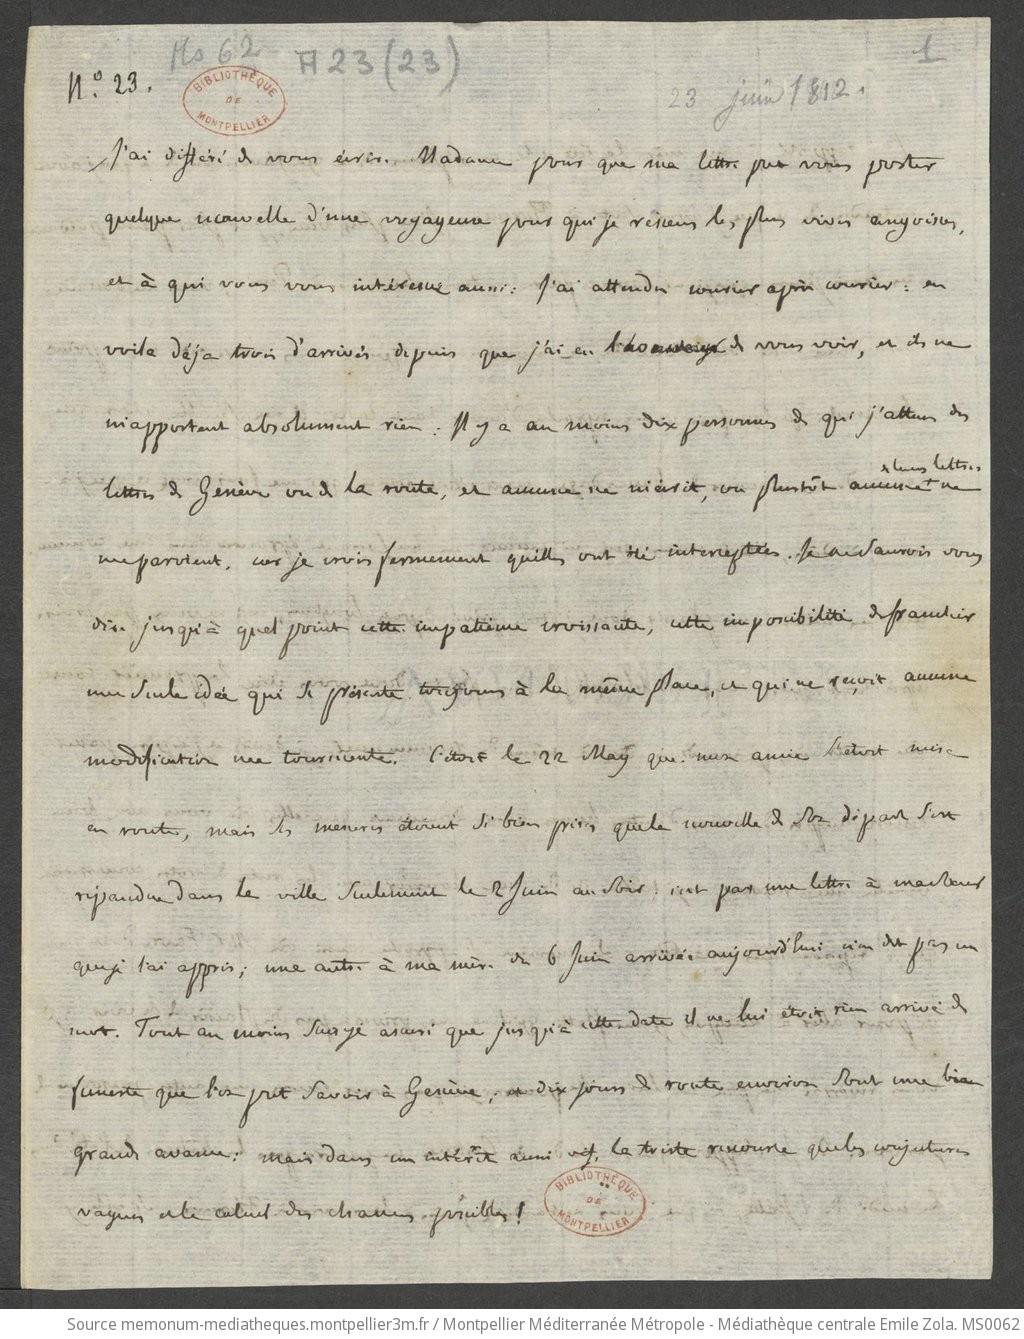 Ms 62 A 23 (23) 1
N.º 23.
BIBLIOTHÈQUE DE MONTPELLIER
23 juin 1812.
J'ai différé de vous écrire. Madame pour que ma lettre put vous porter
quelque nouvelle d'une voyageuse pour qui je ressens les plus vives angoisses,
et à qui vous vous intéressez aussi: J'ai attendu courier après courier: en
voila déja trois d'arrivés depuis que j'ai eu l'honneur de vous voir, et ils ne
m'apportent absolument rien: Il y a au moins dix personnes de qui j'attens des
lettres de Genève ou de la route, et aucune ne m'écrit, ou plustôt aucune de leurs lettres ne
me parvient, car je crois fermement quelles ont été interceptées. Je ne saurois vous
dire jusqu'à quel point cette impatience croissante, cette impossibilité de franchir
une seule idée qui se présente toujours à la même place, et qui ne reçoit aucune
modification me tourmente. C'étoit le 22 May que mon amie s'étoit mise
en route, mais ses mesures étoient si bien prises que la nouvelle de son départ s'est
répandue dans la ville seulement le 2 Juin au soir: c'est par une lettre à ma soeur
que je l'ai appris; une autre à ma mère du 6 Juin arrivée aujourd'hui n'en dit pas un
mot. Tout au moins suis-je assuré que jusqu'à cette date il ne lui étoit rien arrivé de
funeste que l'on put savoir à Genève, et dix jours de route environ sont une bien
grande avance: mais dans un intérêt aussi vif, la triste ressource que les conjectures
vagues et le calcul des chances possibles!
BIBLIOTHÈQUE DE MONTPELLIER
Source memonum-mediatheques.montpellier3m.fr / Montpellier Méditerranée Métropole - Médiathèque centrale Emile Zola. MS0062